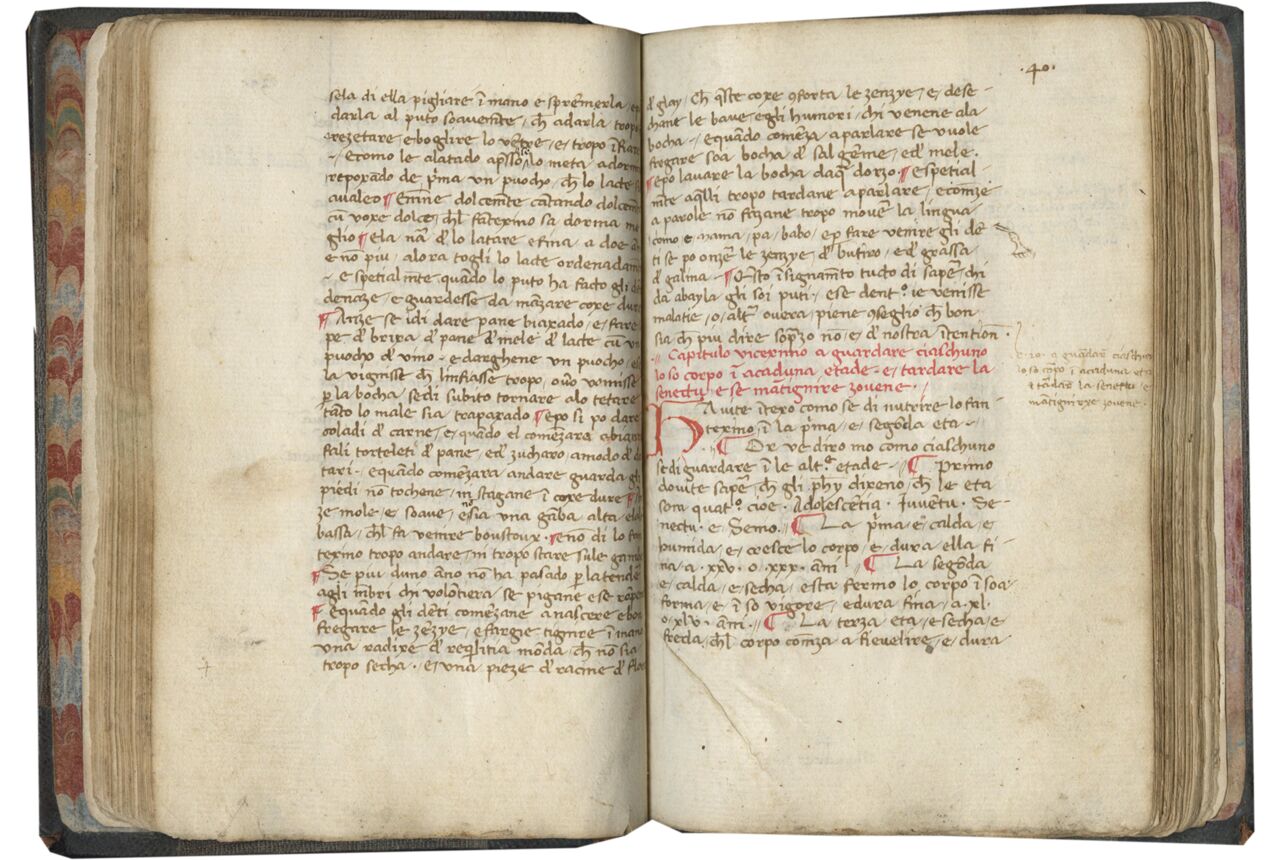 sela di ella pigliare ī mano e spremerla
darla al puto soavemēte, ch adarla tropo
rezetare e boglire lo vētre, e, tropo
e como le alatado lo meta a
reposado de p̄ma un puocho, ch lo lacte
avaleo ¶ Enīne dolcemēte cantando
cū voxe dolce, chl fātexino sa dorma
glio ¶ Ela nā d' lo latare e fina, a doe
e no piu, alora togli lo lacte
e spetialmēte, quādo lo puto ha facto gli
denaze, e guardesse da māzare coxe dur
¶ Anze se idi dare pane biaxado, e, fare
pe d' brixa d' pane d' mele d' lacte cū un
puocho d' vino, e darghene un puocho,
la vignisse ch linfiasse tropo, ovo vomisse
p la bocha, sedi subito tornare alo tetare
tāto lo male sia trapasado ¶ epo si po dare
coladi d' carne, e, quādo el comēzara
fali torteleti d' pane, ed' zucharo, amodo d'
tari, equādo comēzara andare guarda
piedi nō tochene, in stagane ī coxe dure
ze mole, e soave, e nō sia una gāba alta,
bassa, chl fa venire boustoux, ¶ enō di lo
texino tropo andare, in tropo stare sule
¶ Se piu duno āno nō ha pasado p la
agli mēbri chi volōtiera, se pigane ese
¶ equādo gli dēti comēzane a nascere
fregare le zēzye, e fargie tignire ī mano
una radixe d' req̄litia mōda, ch nō sia
tropo secha, e, una pieze d' racine d'
·40·
d' glay, Ch q̄ste coxe 9forta le zenzye, e, dese-
chane le bave egli humori, chi venene ala
bocha, equādo comēza aparlare se vuole
fregare soa bocha d' sal gēme, ed' mele,
¶ epo lavare la bocha daq̄ dorzo ¶ espetial
mēte aq̄lli tropo tardane aparlare, ecomēze
a parole nō fazane tropo mover la lingua
como e, mama, pa, babo, ep fare venire gli dē
ti se po onzer le zenzye d' butiro, ed' grassa
d' galina, ¶ Q̄sto īsignamēto tucto di saper, chi
da abayla gli soi puti, ese dent.° ie venisse
malatie, o, altr overa, piene 9seglio ch bon
sia ch piu dire sop̄zo nō, e, d' nostra ītention
Capitulo viceximo a guardare ciaschuno
lo so corpo ī acaduna etade, e, tardare la
senectu e se mātignire zovene
Havite ītexo como se di nutrire lo fan
texino, ī la p̄ma, e, segōda eta
¶ Or ve diro mo como ciaschuno
se di guardare ī le alt.e etade ¶ Primo
dovite saper, ch gli phy direno, ch le eta
sera quat.° cioe, Adolescētia, Iuvētu, Se-
nectu, e, Senio, ¶ La p̄ma, e, calda, e,
humida, e, cresce lo corpo, e, dura ella fi-
na, a, xxv, o, xxx, āni ¶ La segōda
e, calda, e, secha, e sta fermo lo corpo ī soa
forma, e, ī so vigore, edura fina, a, xl,
o, xlv, āni, ¶ La terza eta, e, secha, e
freda, chl corpo comēza a fievelire, e, dura
a guardar ciaschuno
lo so corpo ī acaduna eta
e tardar la senettu e
mātignirxe zovene